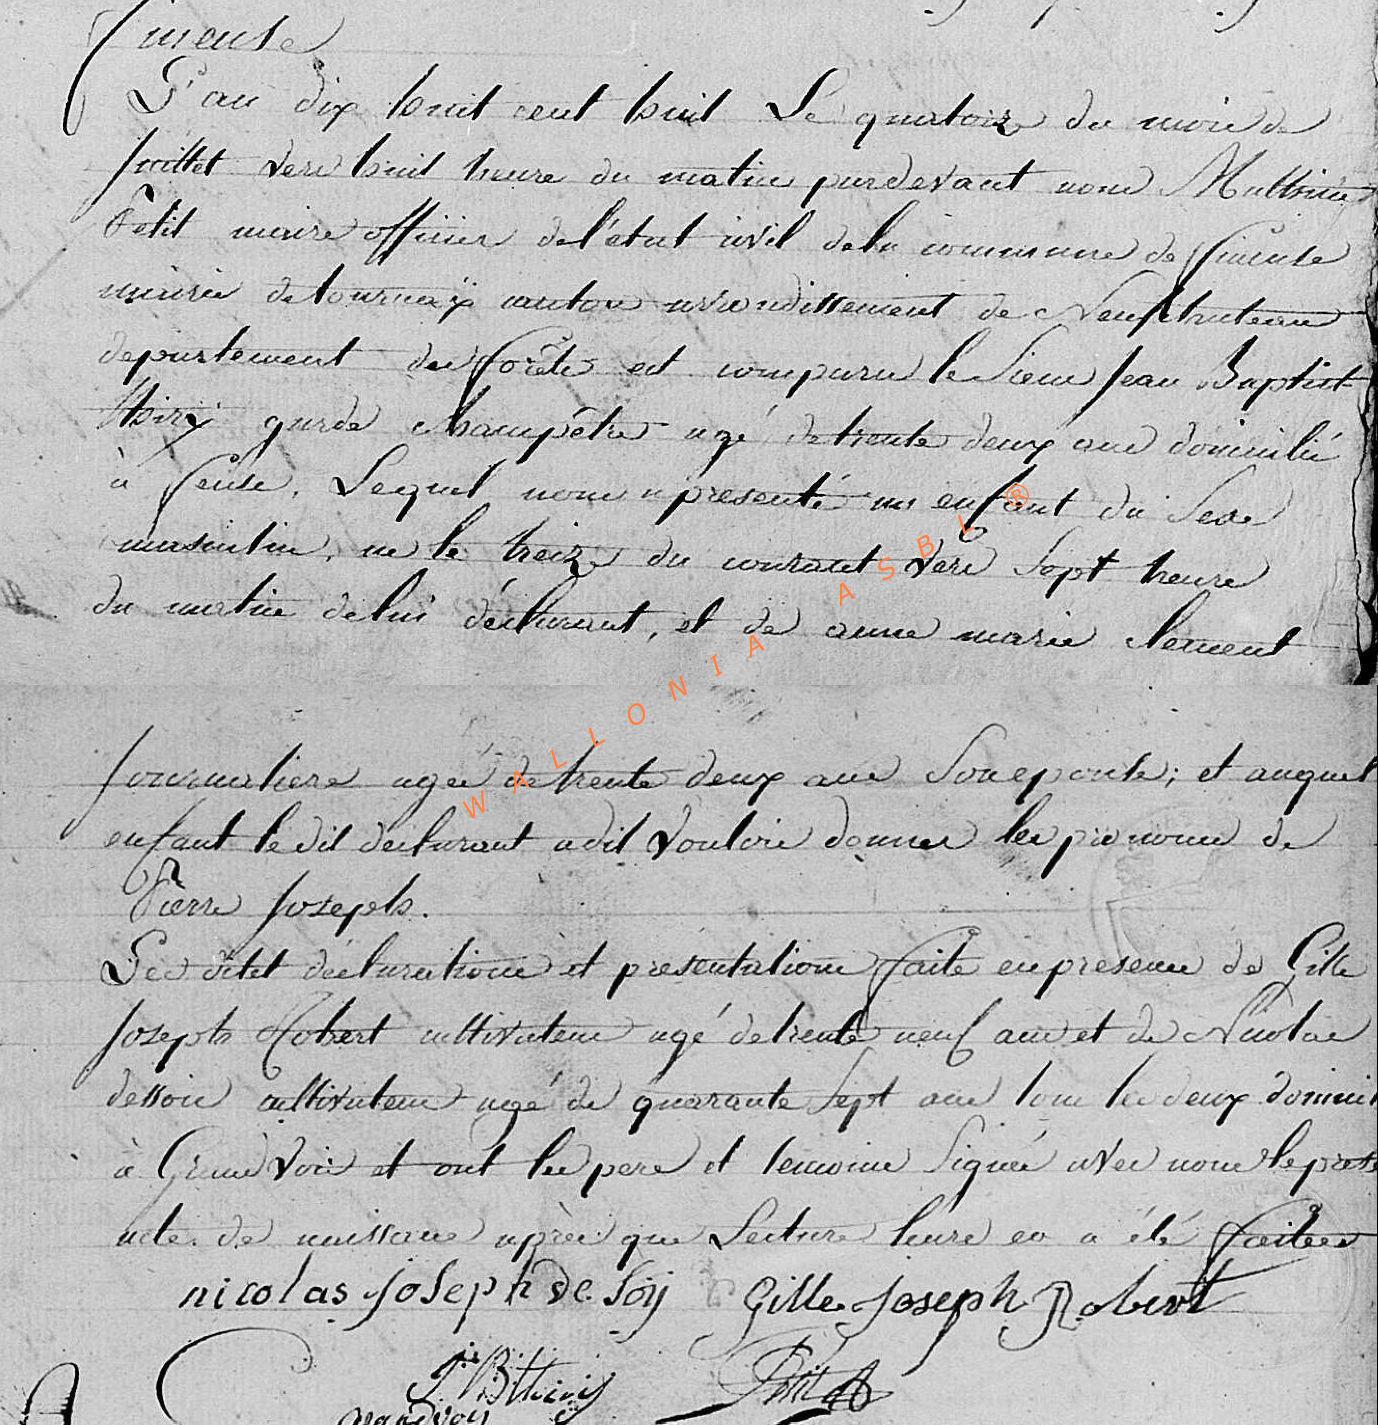 L'an dix huit cent huit Le quatorze du mois de
juillet vers huit heure du matin pardevant nous Mathieu
Petit maire officier de l'état civil de la commune de
mairie de tournay canton arrondissement de Neufchateau
departement des forêts est comparu le Sieur jean Baptist
thiry garde champêtre agé de trente deux ans domicilié
à Lequel nous a presenté un enfant du Sexe
masculin, né le treize du courant vers Sept heure
du matin de lui déclarant, et de anne marie clement
journaliere agée de trente deux ans Son epouse; et auquel
enfant le dit declarant a dit Vouloir donner les prenoms de
Pierre joseph.
Les dites déclarations et présentations faite en presence de Gille
joseph Robert cultivateur agé de trente neuf ans et de Nicolas
dessoie cultivateur agé de quarante Sept ans tous les deux domicil
à Grand Voir et ont les pere et temoins Signés avec nous le present
acte de naissance après que Lecture leurs en a été faites
nicolas joseph de Soij Gille joseph Robert
J Bt thiry Petit
grandvoir
WALLONIA ASBL ®